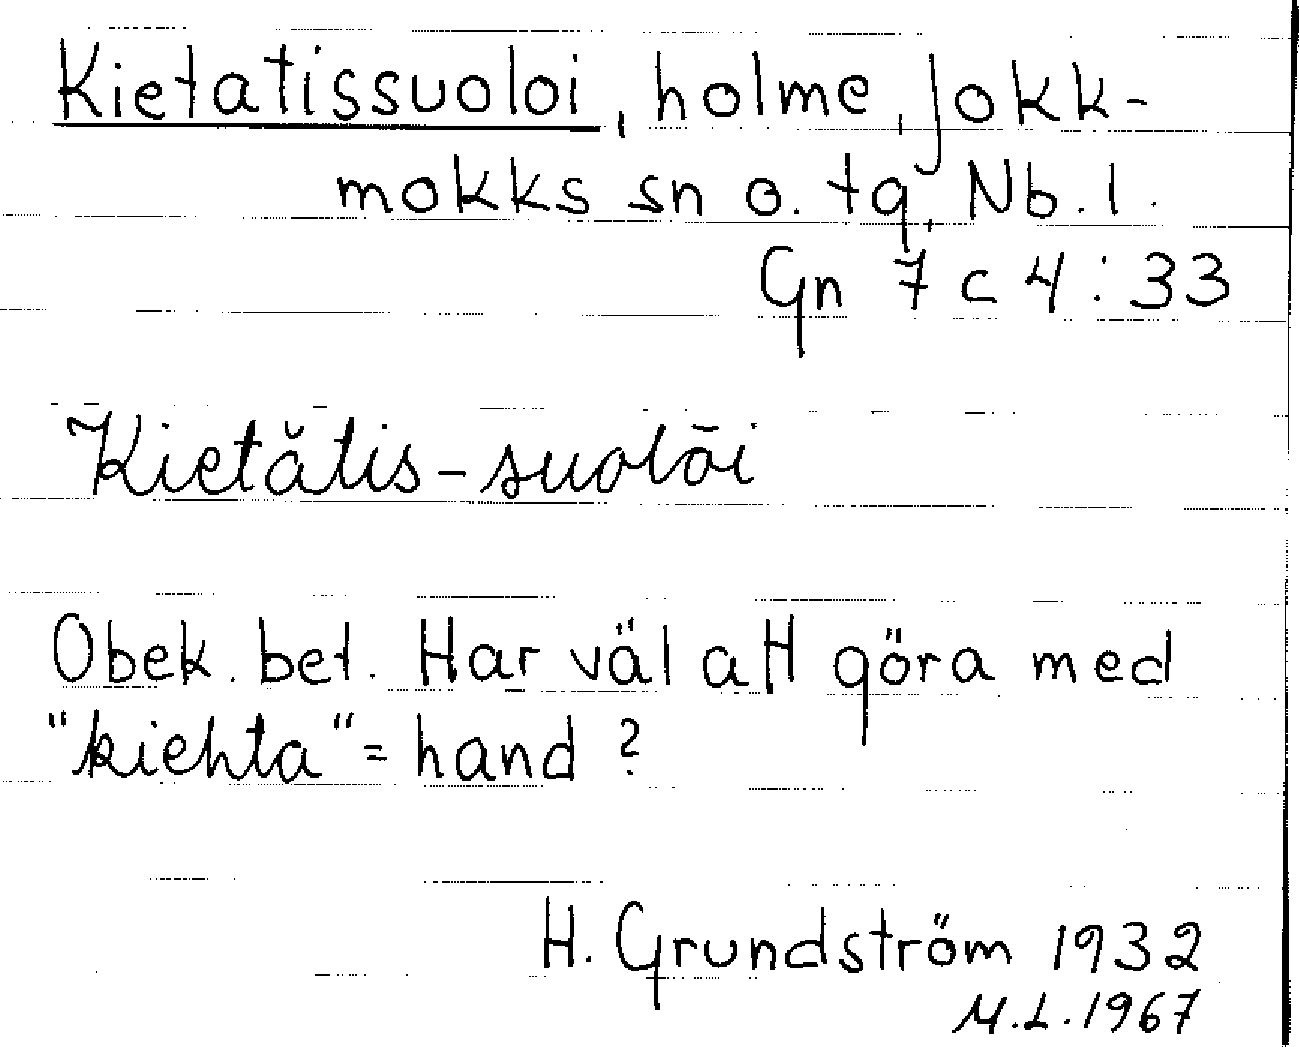 Kietatissuoloi, holme, Jokk-
mokks sn o. tg, Nb. l.
Gn 7 c 4:33
Kietătis-suolōi
Obek. bet. Har väl att göra med
"kiehta" = hand ?
H. Grundström 1932
M.L. 1967